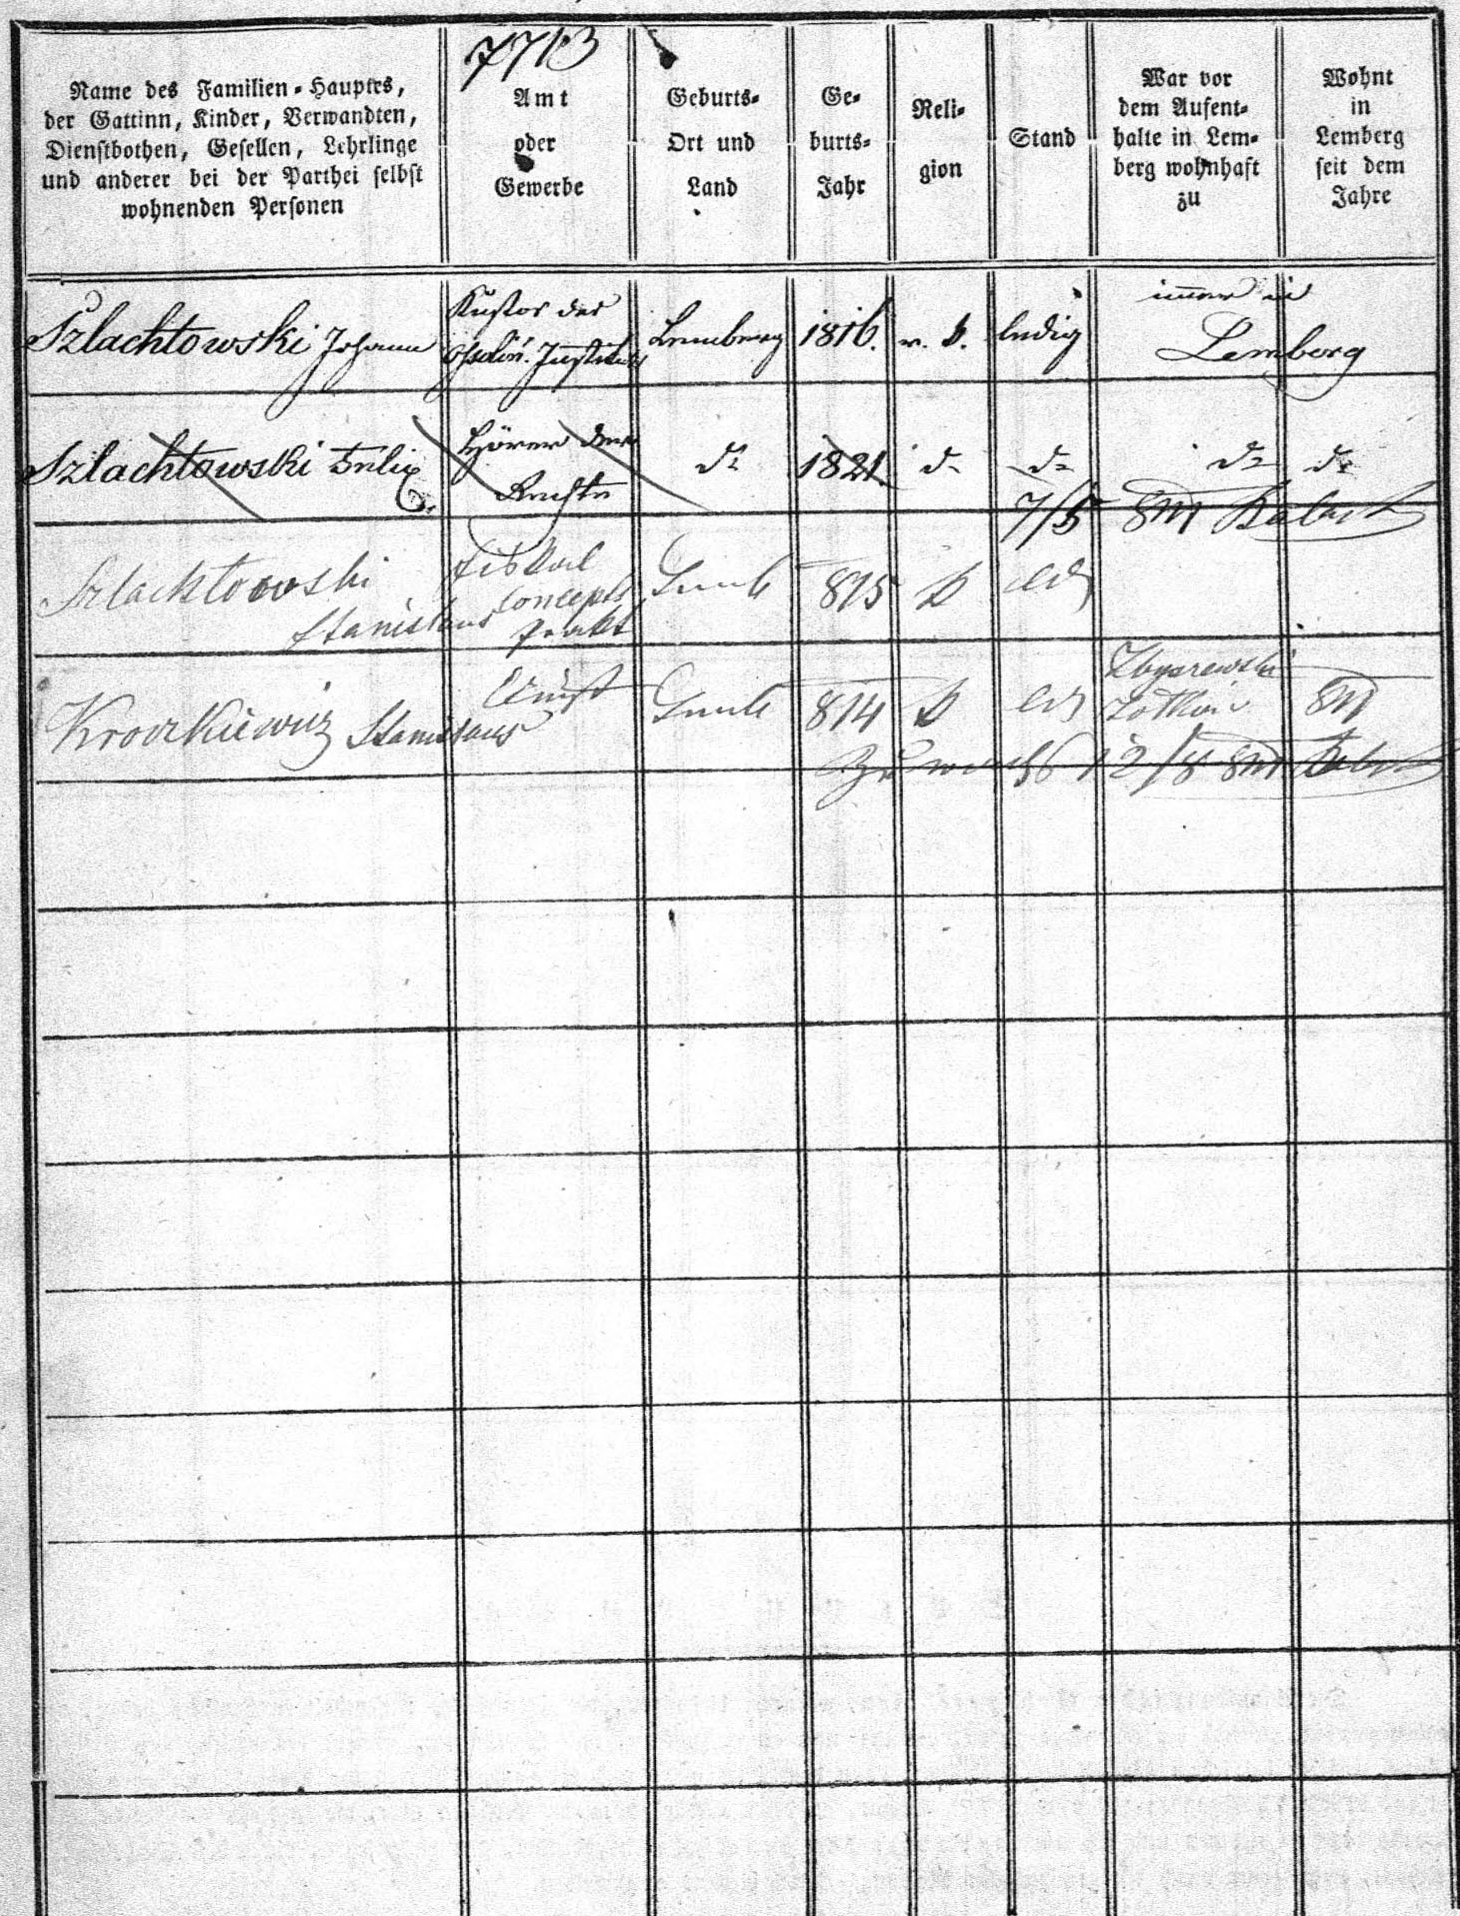 7713
Name des Familien-Hauptes,
der Gattinn, Kinder, Verwandten,
Dienstbothen, Gesellen, Lehrlinge
und anderer bei der Parthei selbst
wohnenden Personen
Amt
oder
Gewerbe
Geburts-
Ort und
Land
Ge-
burts-
Jahr
Reli-
gion
Stand
War vor
dem Aufent-
halte in Lem-
berg wohnhaft
zu
Wohnt
in
Lemberg
seit dem
Jahre
Szlachtowski Johann
Kustos des
Ossolin. Instituts
Lemberg
1816.
r. k.
ledig
immer in
Lemberg
Szlachtowski Felix
Hörer der
Rechte
do
1821.
do
do
do
do
7/5
Szlachtowski
Stanislaus
fiskal
Concepts
prakt
Lemb
815
k
led
Stanislaus
Lemb
814
k
led
Zuwachs 12/8